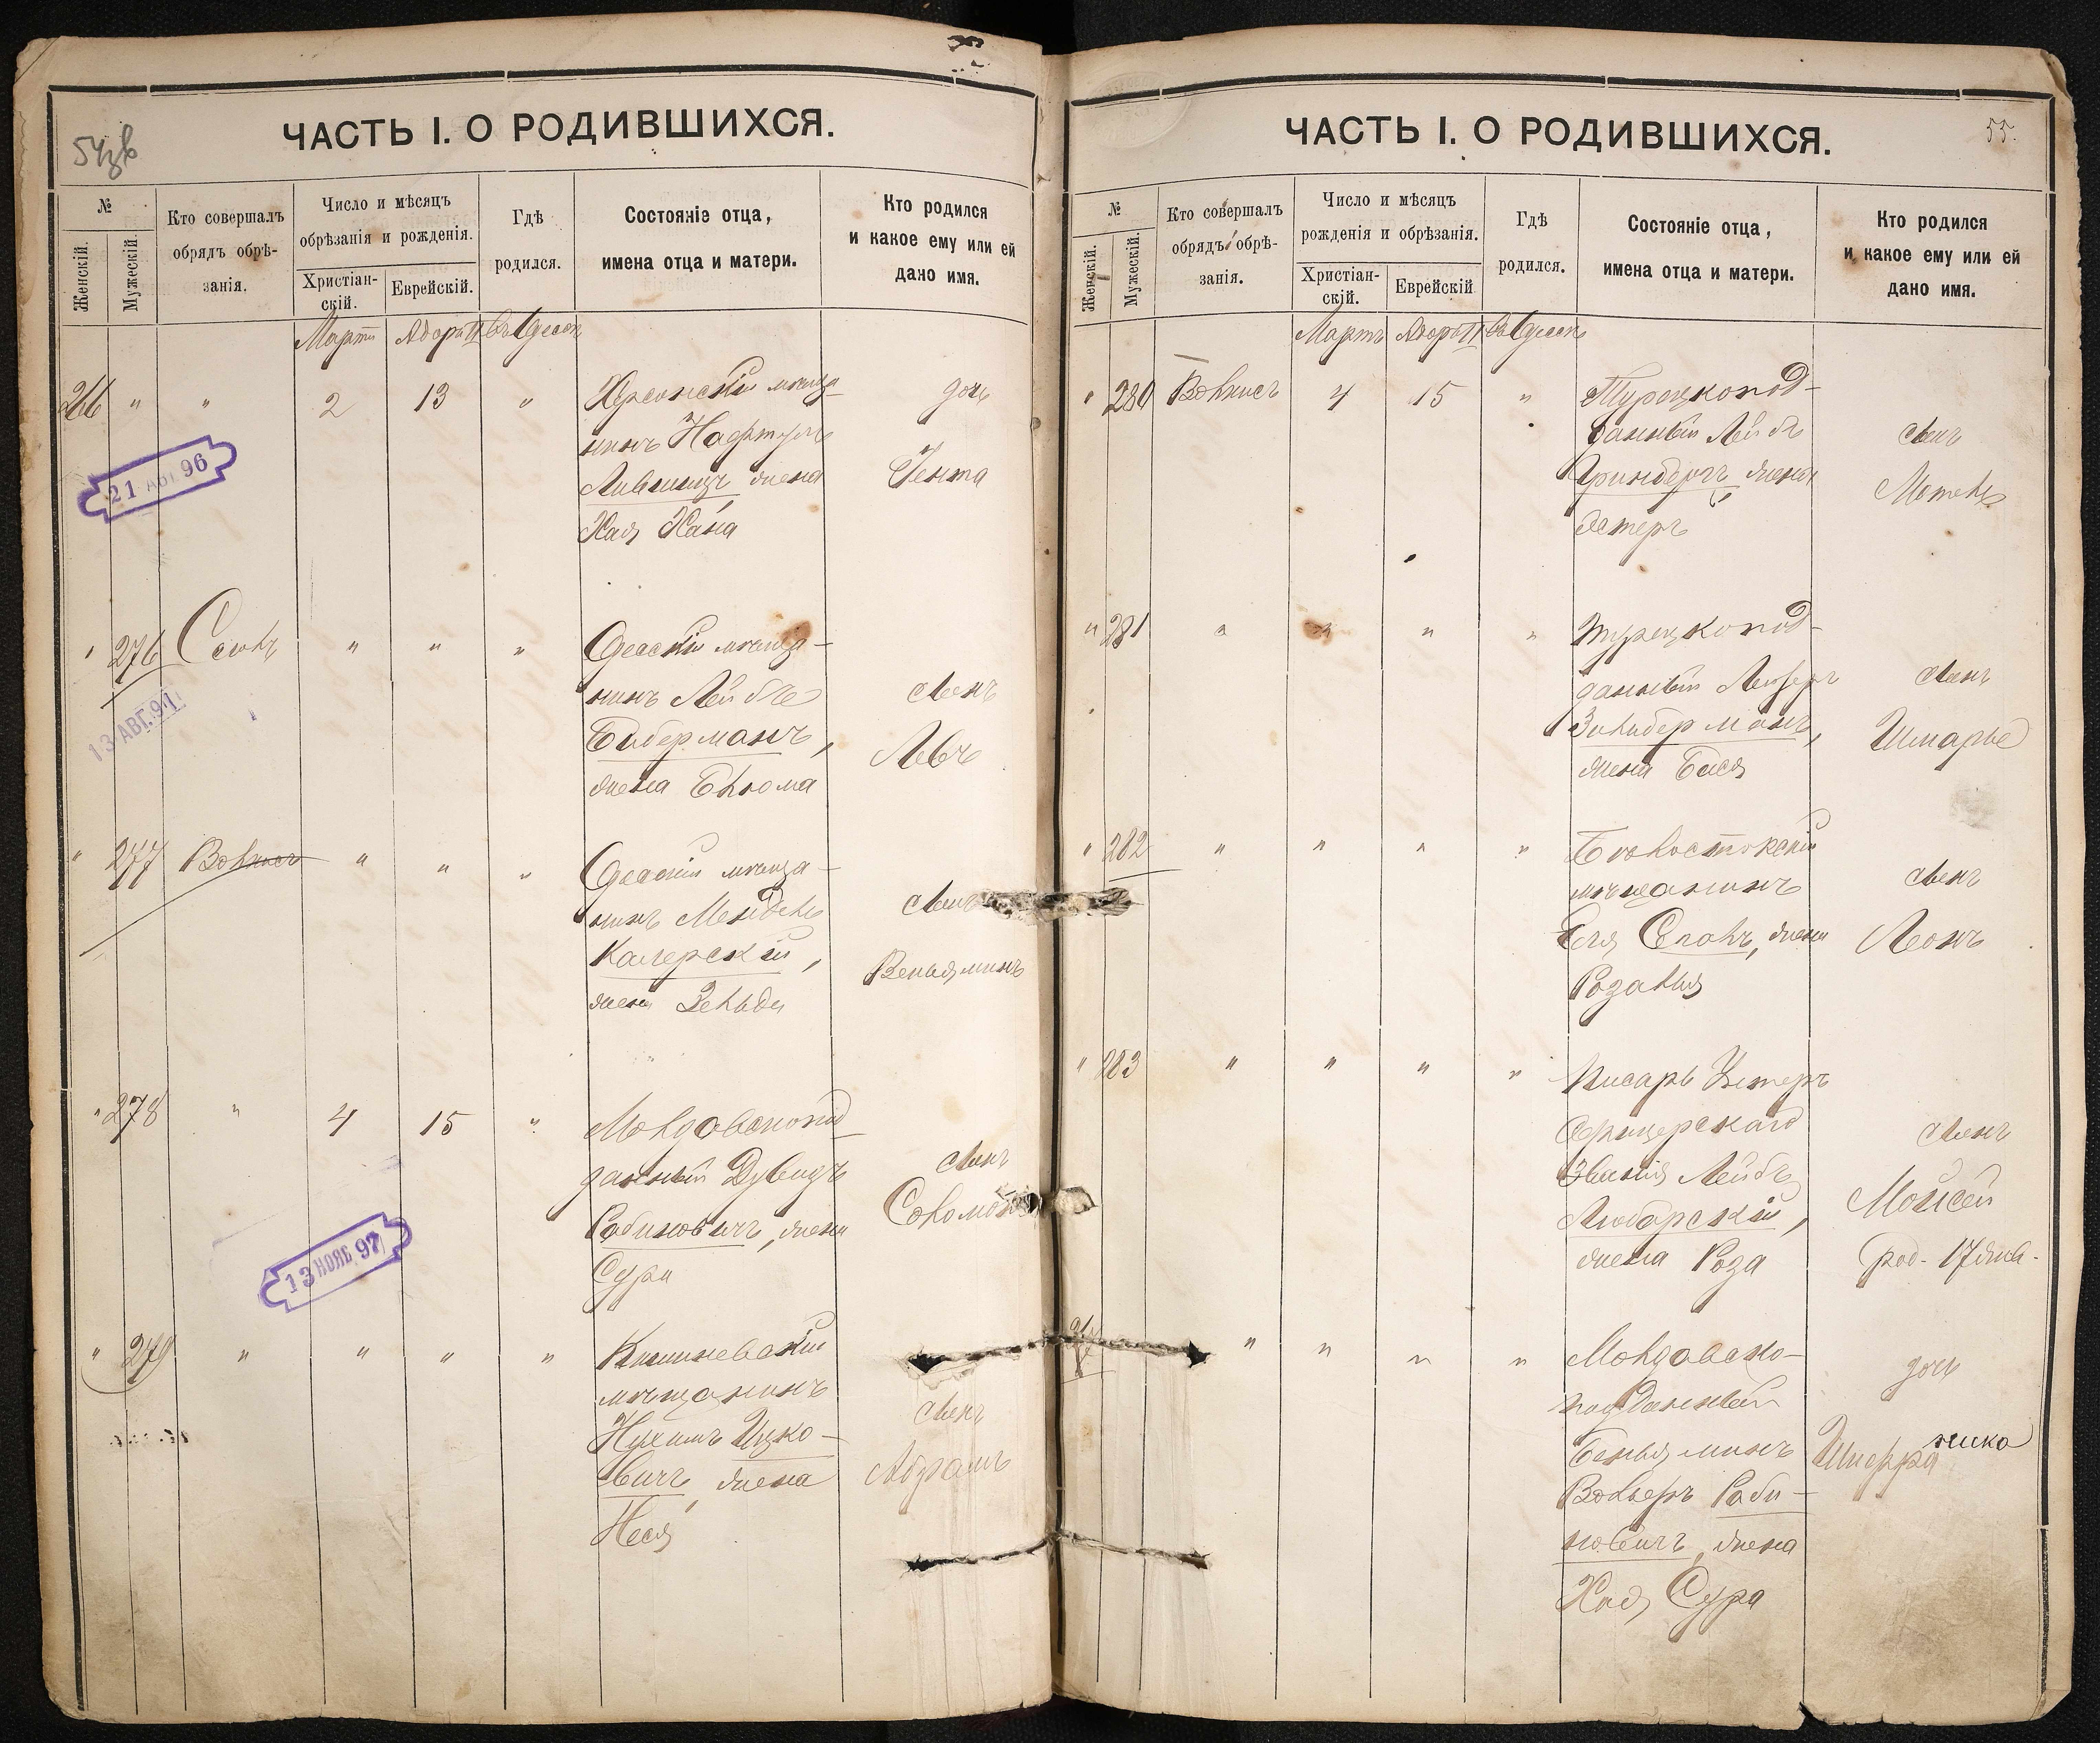 54зв
ЧАСТЬ I. О РОДИВШИХСЯ.
№
Женскій.
Мужескій.
Кто совершалъ
обрядъ обрѣ-
занія.
Число и мѣсяцъ
обрѣзанія и рожденія.
Христіан-
скій.
Еврейскій.
Гдѣ
родился.
Состояніе отца,
имена отца и матери.
Кто родился
и какое ему или ей
дано имя.
Мартъ Адаръ II
266 " " 2 13 " Херсонскій мѣща-
нинъ Нафтуль
Лившицъ, жена
Хая Хана
дочь
Гента
21 АВГ 96
" 276 " " " Одесскій мѣща-
нинъ Лейбъ
Бидерманъ,
жена Блюма
сынъ
Левъ
13 АВГ. 91
" 277 " " " Одесскій мѣща-
нинъ Мендель
жена Зельда
сынъ
Веньяминъ
" 278 " 4 15 " Молдавскопод-
данный Дувидъ
Рабиновичъ, жена
Сура
сынъ
Соломонъ
13 НОЯБ. 97
" 279 " " " " Кишиневскій
мѣщанинъ
Нухимъ Ицко-
вичъ, жена
Неся
сынъ
Абрамъ
55.
ЧАСТЬ I. О РОДИВШИХСЯ.
№
Женскій.
Мужескій.
Кто совершалъ
обрядъ обрѣ-
занія.
Число и мѣсяцъ
рожденія и обрѣзанія.
Христіан-
скій.
Еврейскій
Гдѣ
родился.
Состояніе отца,
имена отца и матери.
Кто родился
и какое ему или ей
дано имя.
Мартъ Адаръ II
" 280 4 15 " Турецкопод-
данный Лейбъ
Гринбергъ, жена
Эстеръ
сынъ
Мотель
" 281 " " " " Турецкопод-
данный Лейзеръ
Зильберманъ,
жена Бася
сынъ
Шмарье
" 282 " " " " Бѣлостокскій
мѣщанинъ
жена
Розалія
сынъ
Леонъ
" 283 " " " " Писарь Унтеръ
Офицерскаго
Званія Лейбъ
Любарскій,
жена Роза
сынъ
Мойсей
род. 17 янв.
" " " " Молдавско-
подданный
Беньяминъ
Вольфъ Раби-
новичъ, жена
Хая Сура
дочь